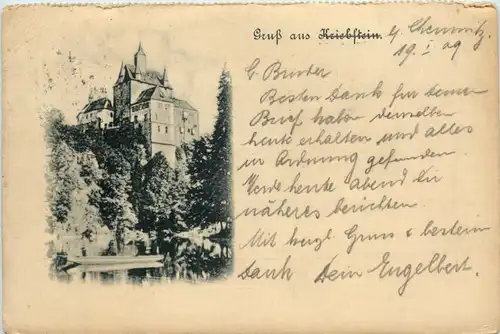 Gruß aus Kriebstein. z. Chemnitz.
19. I 09
L. Bruder
Besten Dank für Deinen
Brief habe denselben
heute erhalten und alles
in Ordnung gefunden
Werde heute abend Dir
näheres berichten.
Mit herzl. Gruss & bestem
Dank Dein Engelbert.